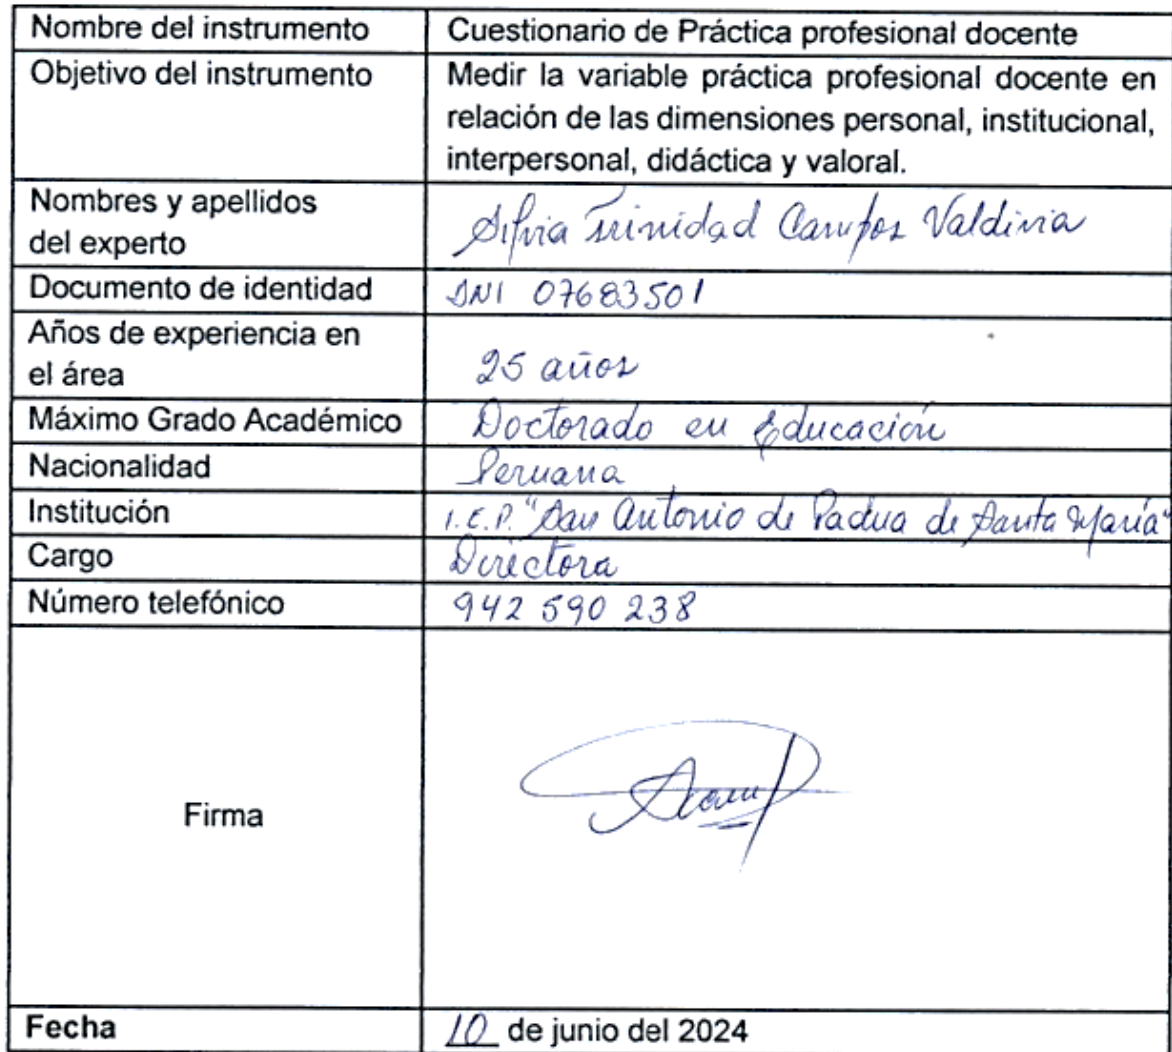 Nombre del instrumento Cuestionario de Práctica profesional docente
Objetivo del instrumento Medir la variable práctica profesional docente en
relación de las dimensiones personal, institucional,
interpersonal, didáctica y valoral.
Nombres y apellidos
del experto Silvia Trinidad Campos Valdivia
Documento de identidad DNI 07683501
Años de experiencia en
el área 25 años
Máximo Grado Académico Doctorado en Educación
Nacionalidad Peruana
Institución I.E.P. "San Antonio de Padua de Santa María"
Cargo Directora
Número telefónico 942 590 238
Firma
Fecha 10 de junio del 2024